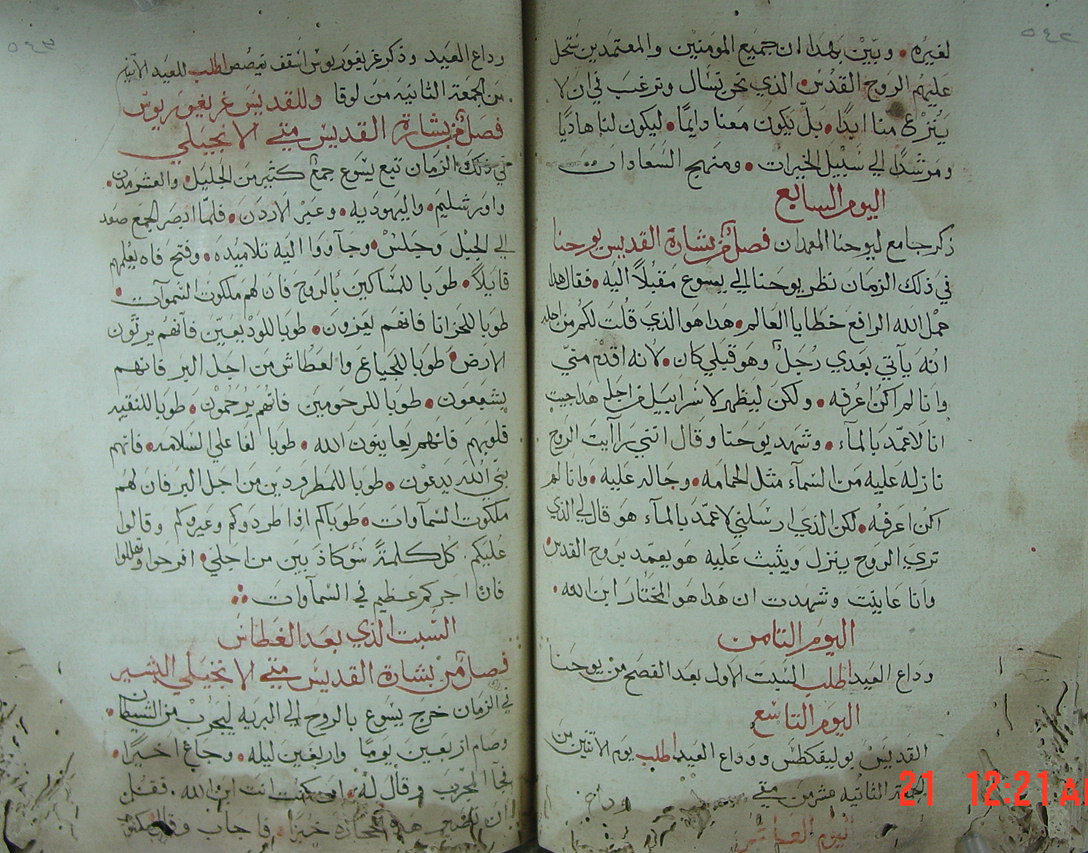 ٥٤٢
لغيره وبيّن بهذا ان جميع المومنين والمعتمدين ستحل
عليهم الروح القدس الذي نحن نسال ونرغب في ان لا
ينزع منا ابدًا بل يكون معنا دايمًا ليكون لنا هاديًا
ومرشدًا الي سبيل الخيرات ومنهج السعادات
اليوم السابع
ذكر جامع ليوحنا المعمدان فصل من بشارة القديس يوحنا
في ذلك الزمان نظر يوحنا الي يسوع مقبلًا اليه فقال هذا
حمل الله الرافع خطايا العالم هذا هو الذي قلت لكم من اجله
انه ياتي بعدي رجل وهو قبلي كان لانه اقدم منّي
وانا لم اكن اعرفه ولكن ليظهر لاسراييل من اجل هذا جيت
انا لاعمد بالمآء وشهد يوحنا وقال انني رايت الروح
نازله عليه من السمآء مثل الحمامه وحاله عليه وانا لم
اكن اعرفه لكن الذي ارسلني لاعمد بالمآء هو قال لي الذي
تري الروح ينزل ويثبت عليه هو يعمد بروح القدس
وانا عاينت وشهدت ان هذا هو المختار ابن الله
اليوم الثامن
وداع العيد اطلب السبت الاول بعد الفصح من يوحنا
اليوم التاسع
القديس بوليفكطس ووداع العيد اطلب يوم الاثنين من
الجمعة الثانيه عشر من متي
اليوم العاشر
٥٤٣
وداع العيد وذكر غريغوريوس اسقف نيصص اطلب للعيد
من الجمعة الثانيه من لوقا وللقديس غريغوريوس
فصل من بشارة القديس متي الانجيلي
في ذلك الزمان تبع يسوع جمع كثير من الجليل والعشر مدن
واورشليم واليهوديه وعبر الاردن فلما ابصر الجمع صعد
الي الجبل وجلس وجآووا اليه تلاميذه وفتح فاه يعلمهم
قايلًا طوبا للمساكين بالروح فان لهم ملكوت السموآت
طوبا للحزانا فانهم يعزون طوبا للودعين فانهم يرثون
الارض طوبا للجياع والعطاش من اجل البر فانهم
يشبعون طوبا للرحومين فانهم يرحمون طوبا للنقيه
قلوبهم فانهم يعاينون الله طوبا لفاعلي السلامه فانهم
بني الله يدعون طوبا للمطرودين من اجل البر فان لهم
ملكوت السمآوات طوباكم اذا طردوكم وعيروكم وقالوا
عليكم كل كلمة سؤ كاذبين من اجلي افرحوا وتهللوا
فان اجركم عظيم في السمآوات
السبت الذي بعد الغطاس
فصل من بشارة القديس متي الانجيلي البشير
في الزمان خرج يسوع بالروح الي البريه ليجرب من الشيطان
وصام اربعين يومًا واربعين ليله وجاع اخيرًا
فجآ المجرب وقال له ان كنت انت ابن الله فقل
ان تصير هذه الحجارة خبزًا فاجاب وقال مكتوب
21 12:21 AM